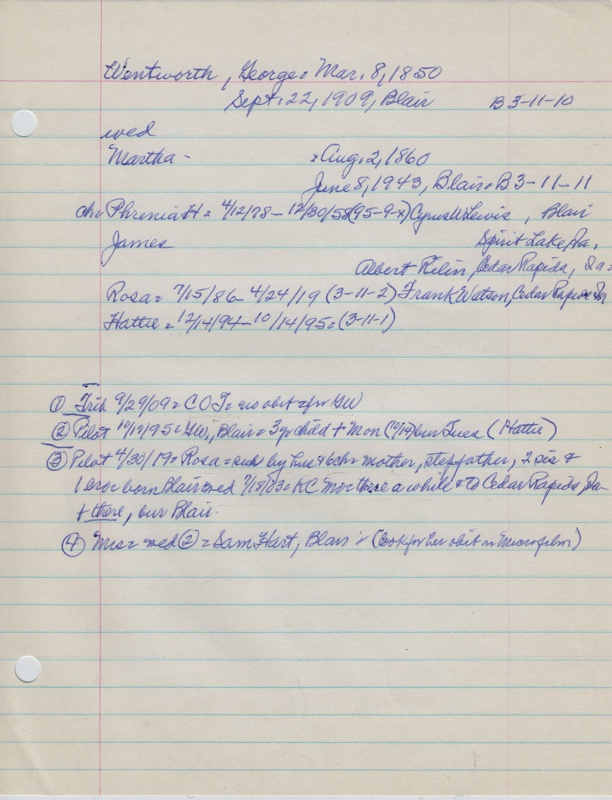 Wentworth, George = Mar. 8, 1850
Sept. 22, 1909, Blair B 3-11-10
wed
Martha - = Aug. 2, 1860
June 8, 1943, Blair = B 3-11-11
ch = Phrenia H = 4/12/78 - 12/30/58 (95-9-x) Cyrus W Lewis, Blair
James Spirit Lake, Ia,
Albert Cedar Rapids, Ia =
Rosa = 7/15/86 - 4/24/19 (3-11-2) Frank Watson, Cedar Rapids Ia
Hattie = 12/14/94 - 10/14/95 = (3-11-1)
① Trib 9/29/09 = C O T = no obit = for GW
② Pilot 10/17/95 = GW, Blair = 3 child + Mon (10/14) bur Tues (Hattie)
③ Pilot 4/30/19 = Rosa = by hus & 6 ch = mother, stepfather, 2 sis &
1 bro = born Blair = wed 7/15/03 = KC Mo = there a while & to Cedar Rapids, Ia
+ there, bur Blair.
④ Mrs = wed ② = Sam Hart, Blair (look for her obit in Microfilm)